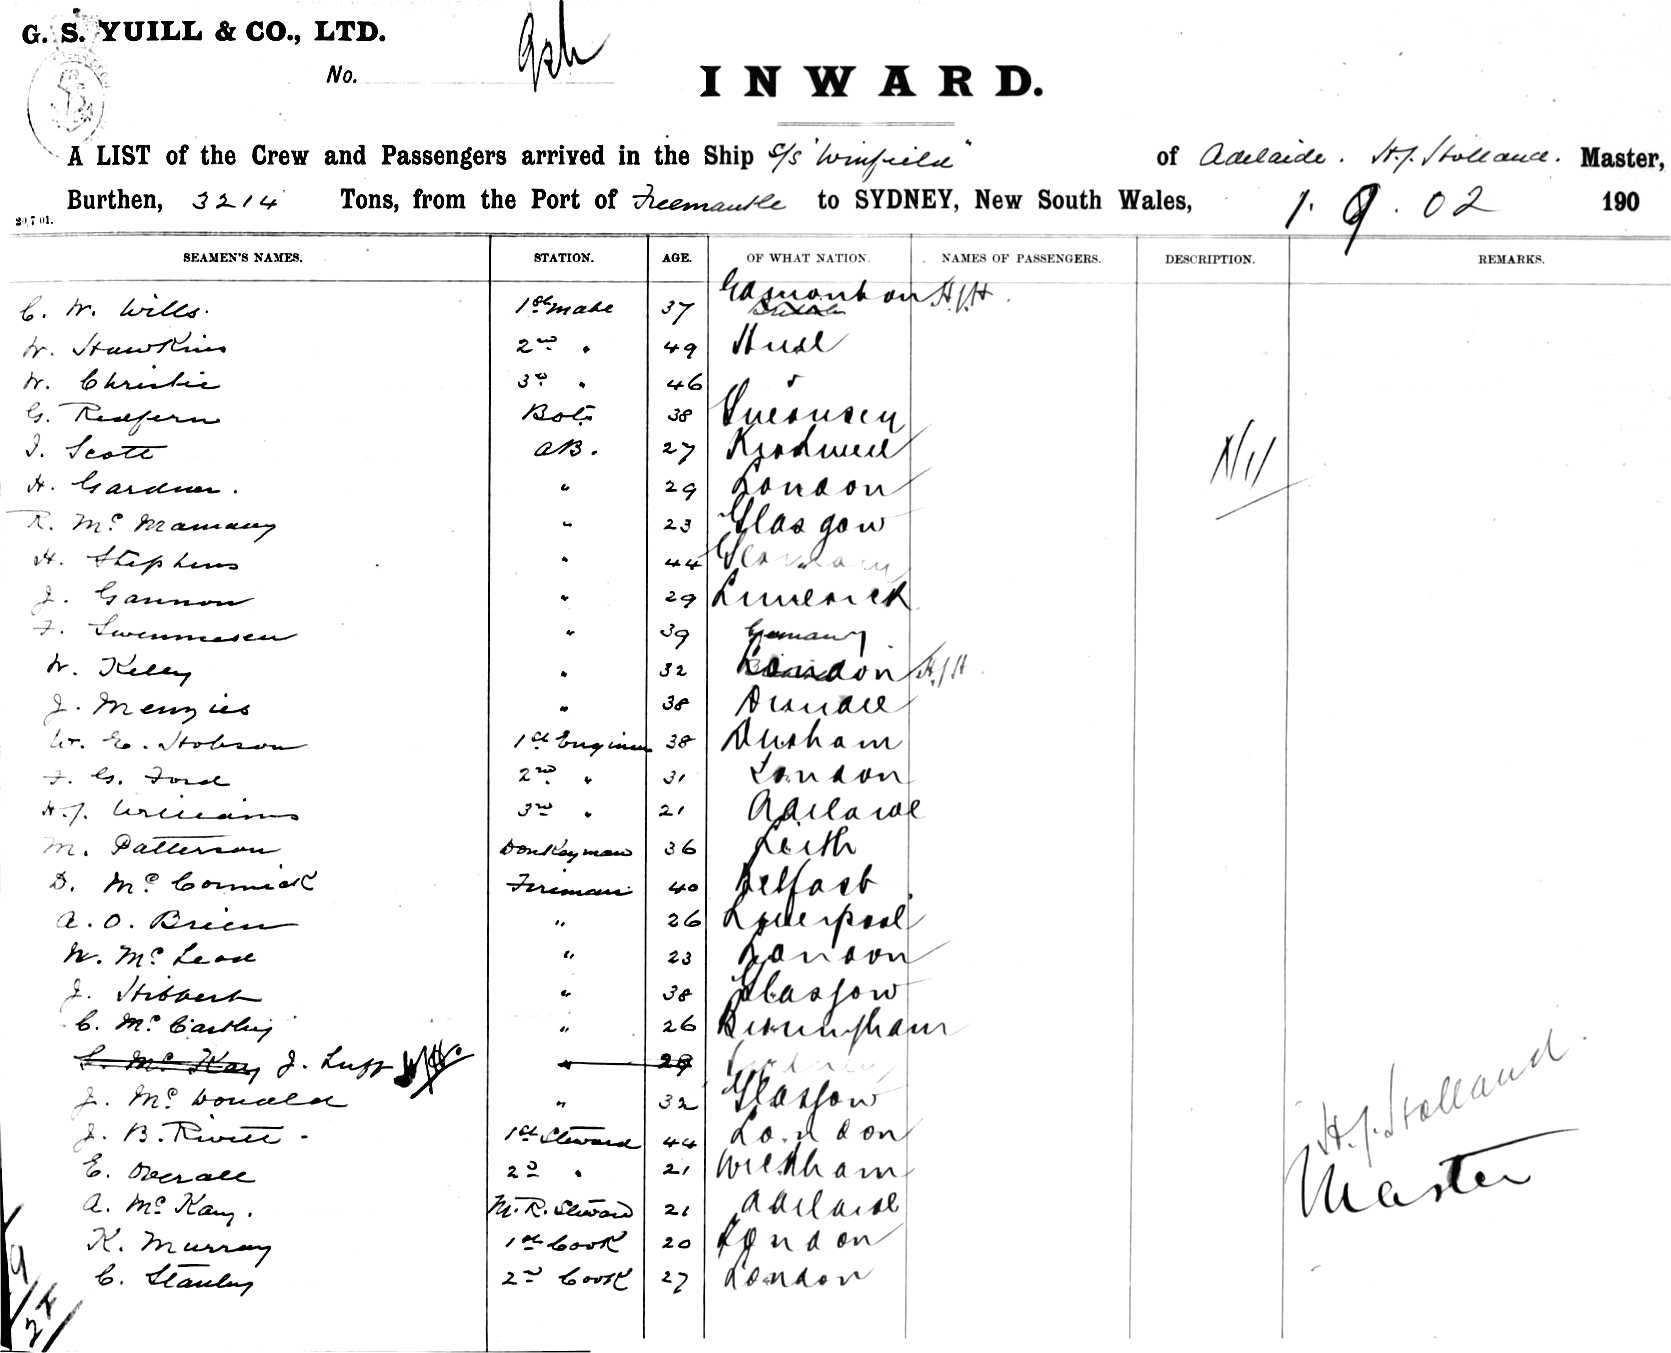 G. S. YUILL & CO., LTD.
No.
INWARD.
A LIST of the Crew and Passengers arrived in the Ship S/S "Winfield" of Adelaide. H. J. Holland. Master,
Burthen, 3214 Tons, from the Port of Freemantle to SYDNEY, New South Wales, 1. 9. 02 190
20,7 01.
SEAMEN'S NAMES. STATION. AGE. OF WHAT NATION. NAMES OF PASSENGERS. DESCRIPTION. REMARKS.
C. W. Wills. 1st mate 37 H.J.H.
W. Hawkins 2nd " 49 Hull
W. Christie 3rd " 46 "
G. Redfern Botn 38 Guernsey
J. Scott AB. 27
Nil
H. Gardner. " 29 London
R. Mc Mamany " 23 Glasgow
H. Stephens " 44 Germany
J. Gannon " 29 Limerick
F. Swennesen " 39 Germany
W. Kelly " 32 London H.J.H.
J. Menzies " 38 Dundee
W. E. Hobson 1st Engineer 38 Durham
F. G. Ford 2nd " 31 London
H. J. Williams 3rd " 21 Adelaide
M. Patterson Donkeyman 36 Leith
D. Mc Cormick Fireman 40 Belfast
A. O. Brien " 26 Liverpool
W. Mc Leod " 23 London
J. Hibbert " 38 Glasgow
C. Mc Carthy " 26 Birmingham
Mc Kay J. Luff " 29
J. Mc Donald " 32 Glasgow
J. B. Rivett - 1st Steward 44 London
E. Overall 2nd " 21 Witham
A. Mc Kay. M. R. Steward 21 Adelaide
K. Murray 1st Cook 20 London
C. Stanley 2nd Cook 27 London
H. J. Holland
Master
9/24